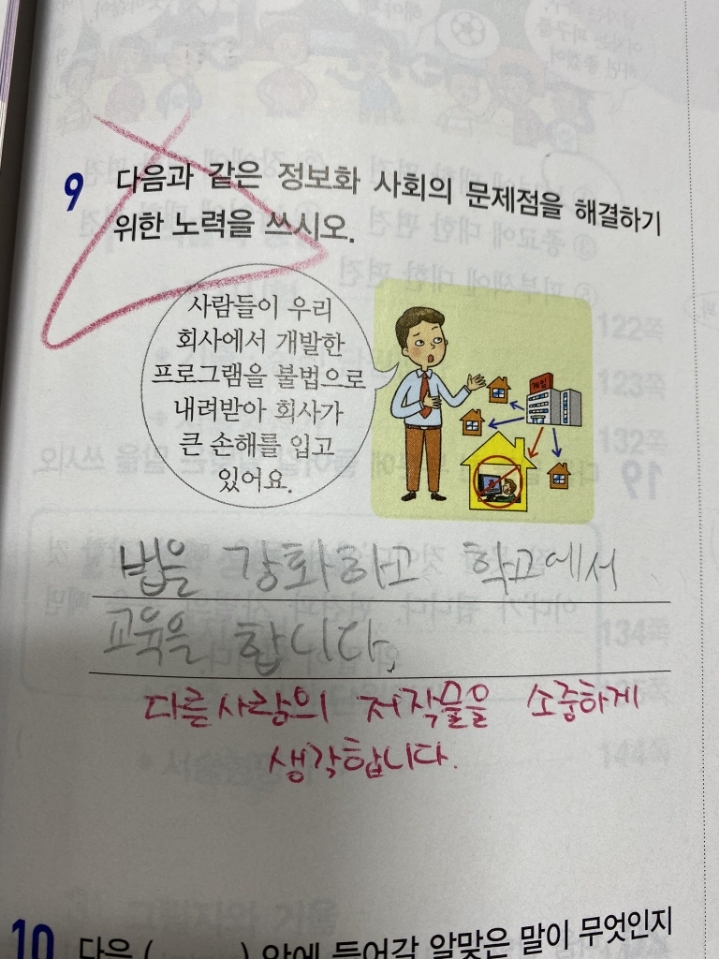 9 다음과 같은 정보화 사회의 문제점을 해결하기
위한 노력을 쓰시오.
사람들이 우리
회사에서 개발한
프로그램을 불법으로
내려받아 회사가
큰 손해를 입고
있어요.
게임
법을 강화하고 학교에서
교육을 합니다.
다른사람의 저작물을 소중하게
생각합니다.
10 다음 ( ) 안에 들어갈 알맞은 말이 무엇인지